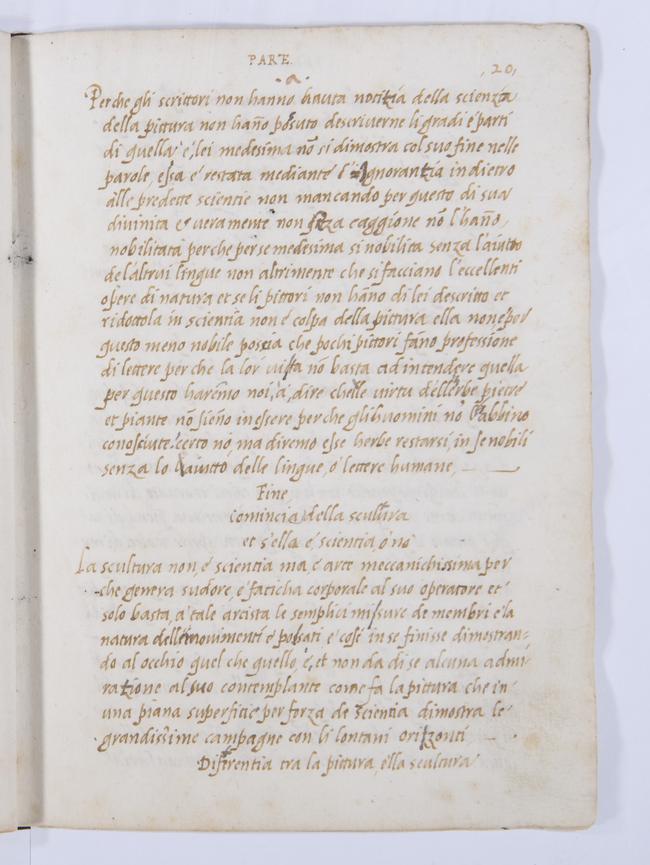 PARTE.
,20,
a
Perche gli scrittori non hanno hauta notitia della scienza
della pittura non hano posuto descriverne li gradi e parti
di quella e, lei medesima nō si dimostra col suo fine nelle
parole, essa e restata mediante l'ignorantia indietro
alle predette scientie non mancando per questo di sua
divinita e veramente non seza caggione nō l'hano,
nobilitata perche per se medesima si nobilita senza l'aiuto
de l'altrui lingue non altrimente che si facciano l'eccellenti
opere di natura et se li pittori non hano di lei descritto et
ridottola in scientia non e colpa della pittura ella none per
questo meno nobile poscia che pochi pittori fano professione
di lettere perche la lor vista nō basta ad intendere quella
per questo haremo noi, a, dire chelle virtu dellerbe pietre
et piante nō sieno in essere perche gli huomini nō l'abbino
conosciute. certo nō, ma diremo esse herbe restarsi, in se nobili
senza lo aiutto delle lingue, o' lettere humane,
Fine,
comincia della scultura
et s'ella e' scientia, o no
La scultura non, e scientia ma e arte meccanichissima per
che genera sudore, e faticha corporale al suo operatore et
solo basta, a' tale artista le semplici misure de membri e la
natura delli movimenti e posati e' cose in se finisse dimostran=
do al occhio quel che quello, e', et non da di se alcuna admi-
ratione al suo contemplante come fa la pittura che in-
una piana superfitie per forza de scientia dimostra le
grandissime campagne con li lontani orizonti
Difrentia tra la pittura, e lla scultura